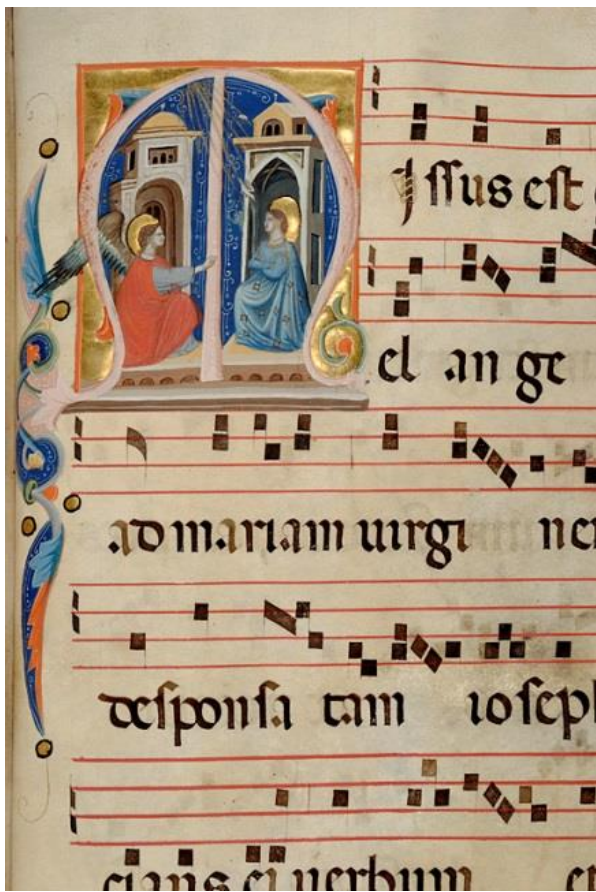 Missus est
el an ge
ad mariam uirgi ne
desponsa tam ioseph
cians ei uerbum